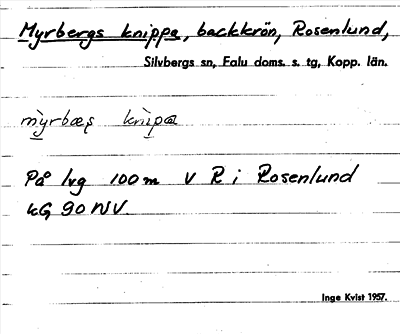 Myrbergs knippa, backkrön, Rosenlund,
Silvbergs sn, Falu doms. s. tg, Kopp. län.
På lvg 100 m V R i Rosenlund
kG 90 NV.
Inge Kvist 1957.